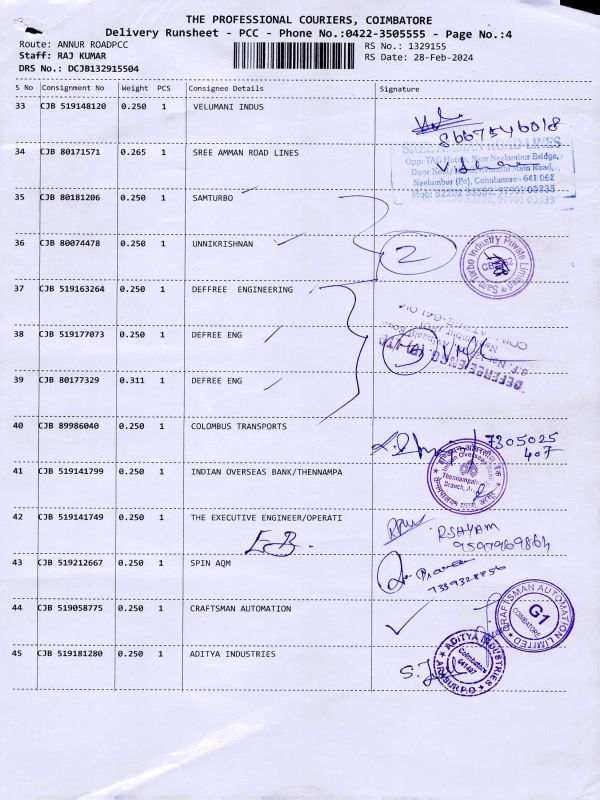 THE PROFESSIONAL COURIERS, COIMBATORE
Delivery Runsheet - PCC - Phone No.:0422-3505555 - Page No.:4
Route: ANNUR ROADPCC
RS No.: 1329155
Staff: RAJ KUMAR
RS Date: 28-Feb-2024
DRS No.: DCJB132915504
S No Consignment No Weight PCS Consignee Details Signature
33 CJB 519148120 0.250 1 VELUMANI INDUS
8667546018
34 CJB 80171571 0.265 1 SREE AMMAN ROAD LINES
SREE AMMAN ROAD LINES
Opp: TAG Hotel, Near Neelambur Bridge,
Door No. Avinashi Main Road,
Neelambur (Po), Coimbatore-641 062
35 CJB 80181206 0.250 1 SAMTURBO
36 CJB 80074478 0.250 1 UNNIKRISHNAN
2
Sam Turbo Industry Private Limited
37 CJB 519163264 0.250 1 DEFFREE ENGINEERING
38 CJB 519177073 0.250 1 DEFREE ENG
3
39 CJB 80177329 0.311 1 DEFREE ENG
40 CJB 89986040 0.250 1 COLOMBUS TRANSPORTS
7305025
407
41 CJB 519141799 0.250 1 INDIAN OVERSEAS BANK/THENNAMPA
Indian Overseas Bank
42 CJB 519141749 0.250 1 THE EXECUTIVE ENGINEER/OPERATI
E.B.
R SHYAM
9597969864
43 CJB 519212667 0.250 1 SPIN AQM
7339328856
44 CJB 519058775 0.250 1 CRAFTSMAN AUTOMATION
CRAFTSMAN AUTOMATION LIMITED
G1
COIMBATORE
45 CJB 519181280 0.250 1 ADITYA INDUSTRIES
ADITYA INDUSTRIES
Coimbatore
641407
ARASUR P.O